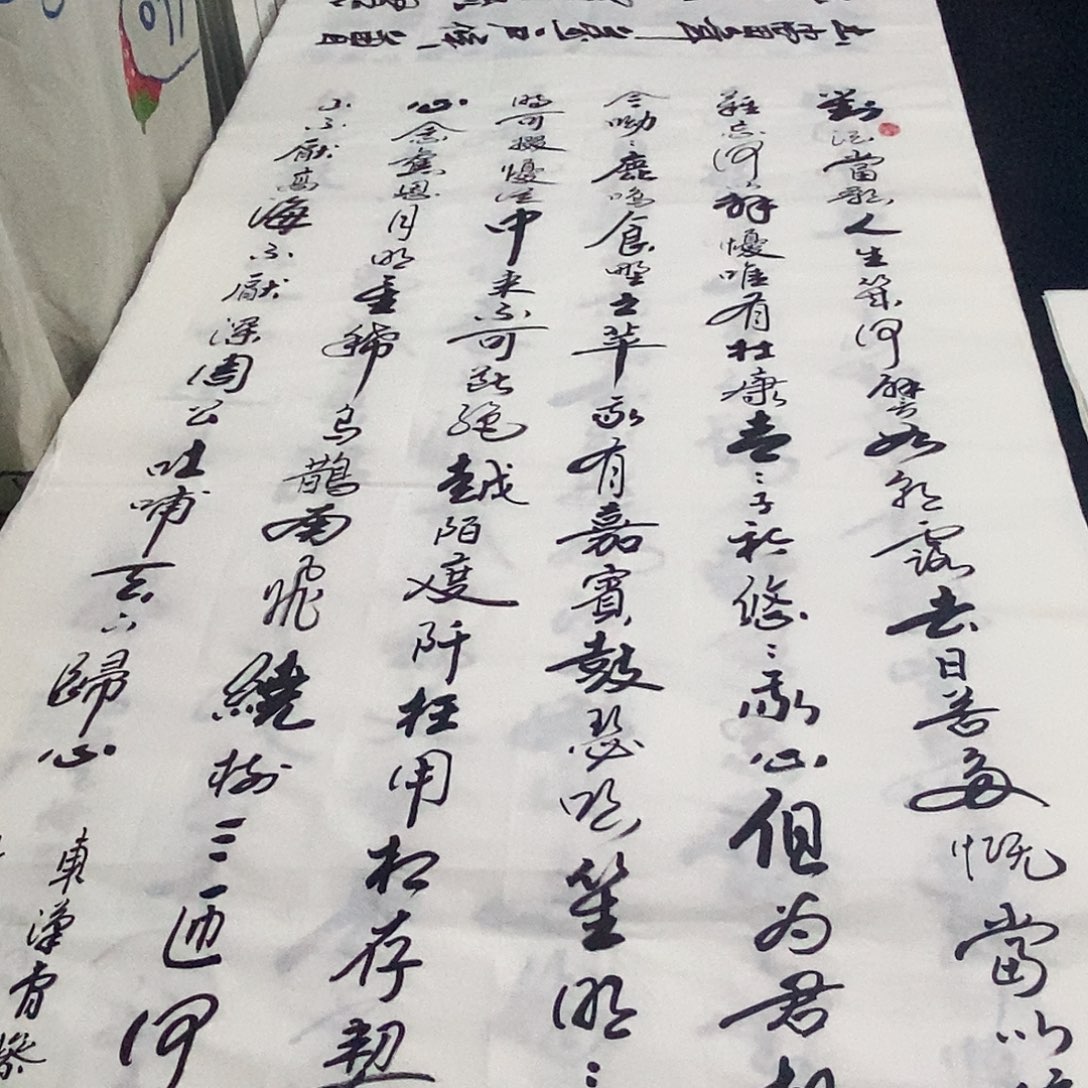 對酒當歌人生幾何譬如朝露去日苦多慨當以
難忘何解懮唯有杜康青〻子衿悠〻我心但为君
今呦〻鹿鳴食野之苹我有嘉賓鼓瑟吹笙明〻
時可掇懮從中來不可斷絕越陌度阡枉用相存契
心念舊恩月明星稀烏鵲南飛繞樹三匝何
山不厭高海不厭深周公吐哺天下歸心
車漢